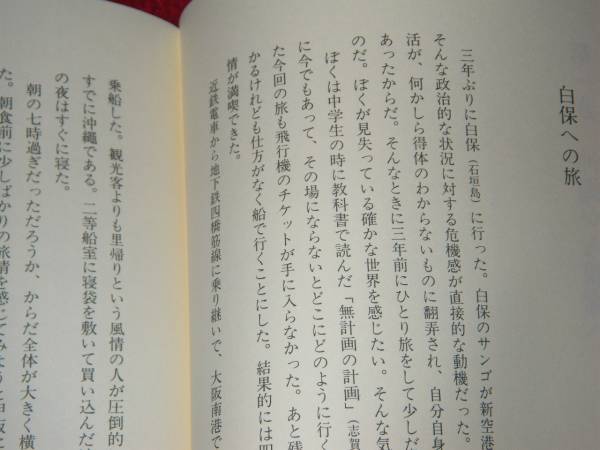 白保への旅
三年ぶりに白保（石垣島）に行った。白保のサンゴが新空港
そんな政治的な状況に対する危機感が直接的な動機だった。
活が、何かしら得体のわからないものに翻弄され、自分自身
あったからだ。そんなときに三年前にひとり旅をして少しだ
のだ。ぼくが見失っている確かな世界を感じたい。そんな気
ぼくは中学生の時に教科書で読んだ「無計画の計画」（志賀
に今でもあって、その場にならないとどこにどのように行く
た今回の旅も飛行機のチケットが手に入らなかった。あと残
かるけれども仕方がなく船で行くことにした。結果的には四
情が満喫できた。
近鉄電車から地下鉄四橋筋線に乗り継いで、大阪南港で
乗船した。観光客よりも里帰りという風情の人が圧倒的
すでに沖縄である。二等船室に寝袋を敷いて買い込んだ
の夜はすぐに寝た。
朝の七時過ぎだっただろうか、からだ全体が大きく横
た。朝食前に少しばかりの旅情を感じてみようと甲板に